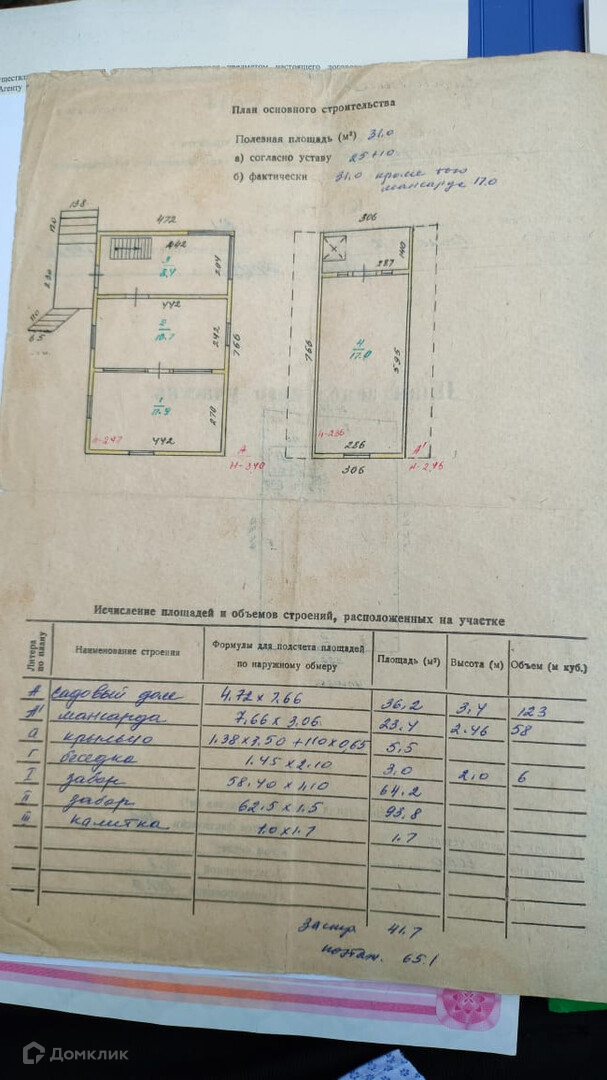 План основного строительства
Полезная площадь (м²) 31.0
а) согласно уставу 25+10
б) фактически 31.0 кроме того
мансарда 17.0
138
472
306
170
442
3
8,4
204
140
287
230
442
2
10.7
242
766
766
4
17.0
595
110
1
11.9
270
h-247
442
А
H-340
h-236
286
А'
H-2,46
306
Исчисление площадей и объемов строений, расположенных на участке
Литера по плану Наименование строения Формулы для подсчета площадей по наружному обмеру Площадь (м²) Высота (м) Объем (м куб.)
А садовый дом 4.72 x 7.66 36,2 3,4 123
А' мансарда 7.66 x 3.06 23,4 2.46 58
а крыльцо 1.38x3.50 +1.10x0,65 5,5
Г беседка 1.45 x 2.10 3,0 2,0 6
I забор 58.40 x 1,10 64,2
II забор 62.5 x 1.5 93,8
III калитка 1.0 x 1.7 1.7
застр 41.7
поэтаж. 65.1
Домклик